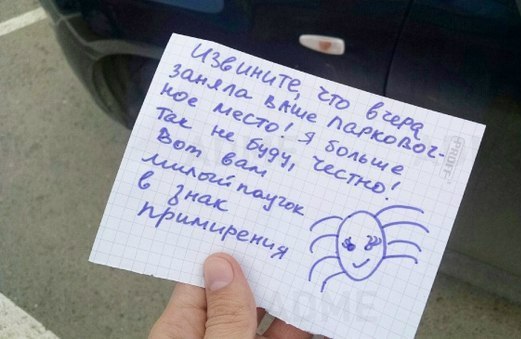 Извините, что вчера
заняла ваше парковоч-
ное место! Я больше
так не буду, честно!
Вот вам
милый паучок
в знак
примирения
PROFF
ADME